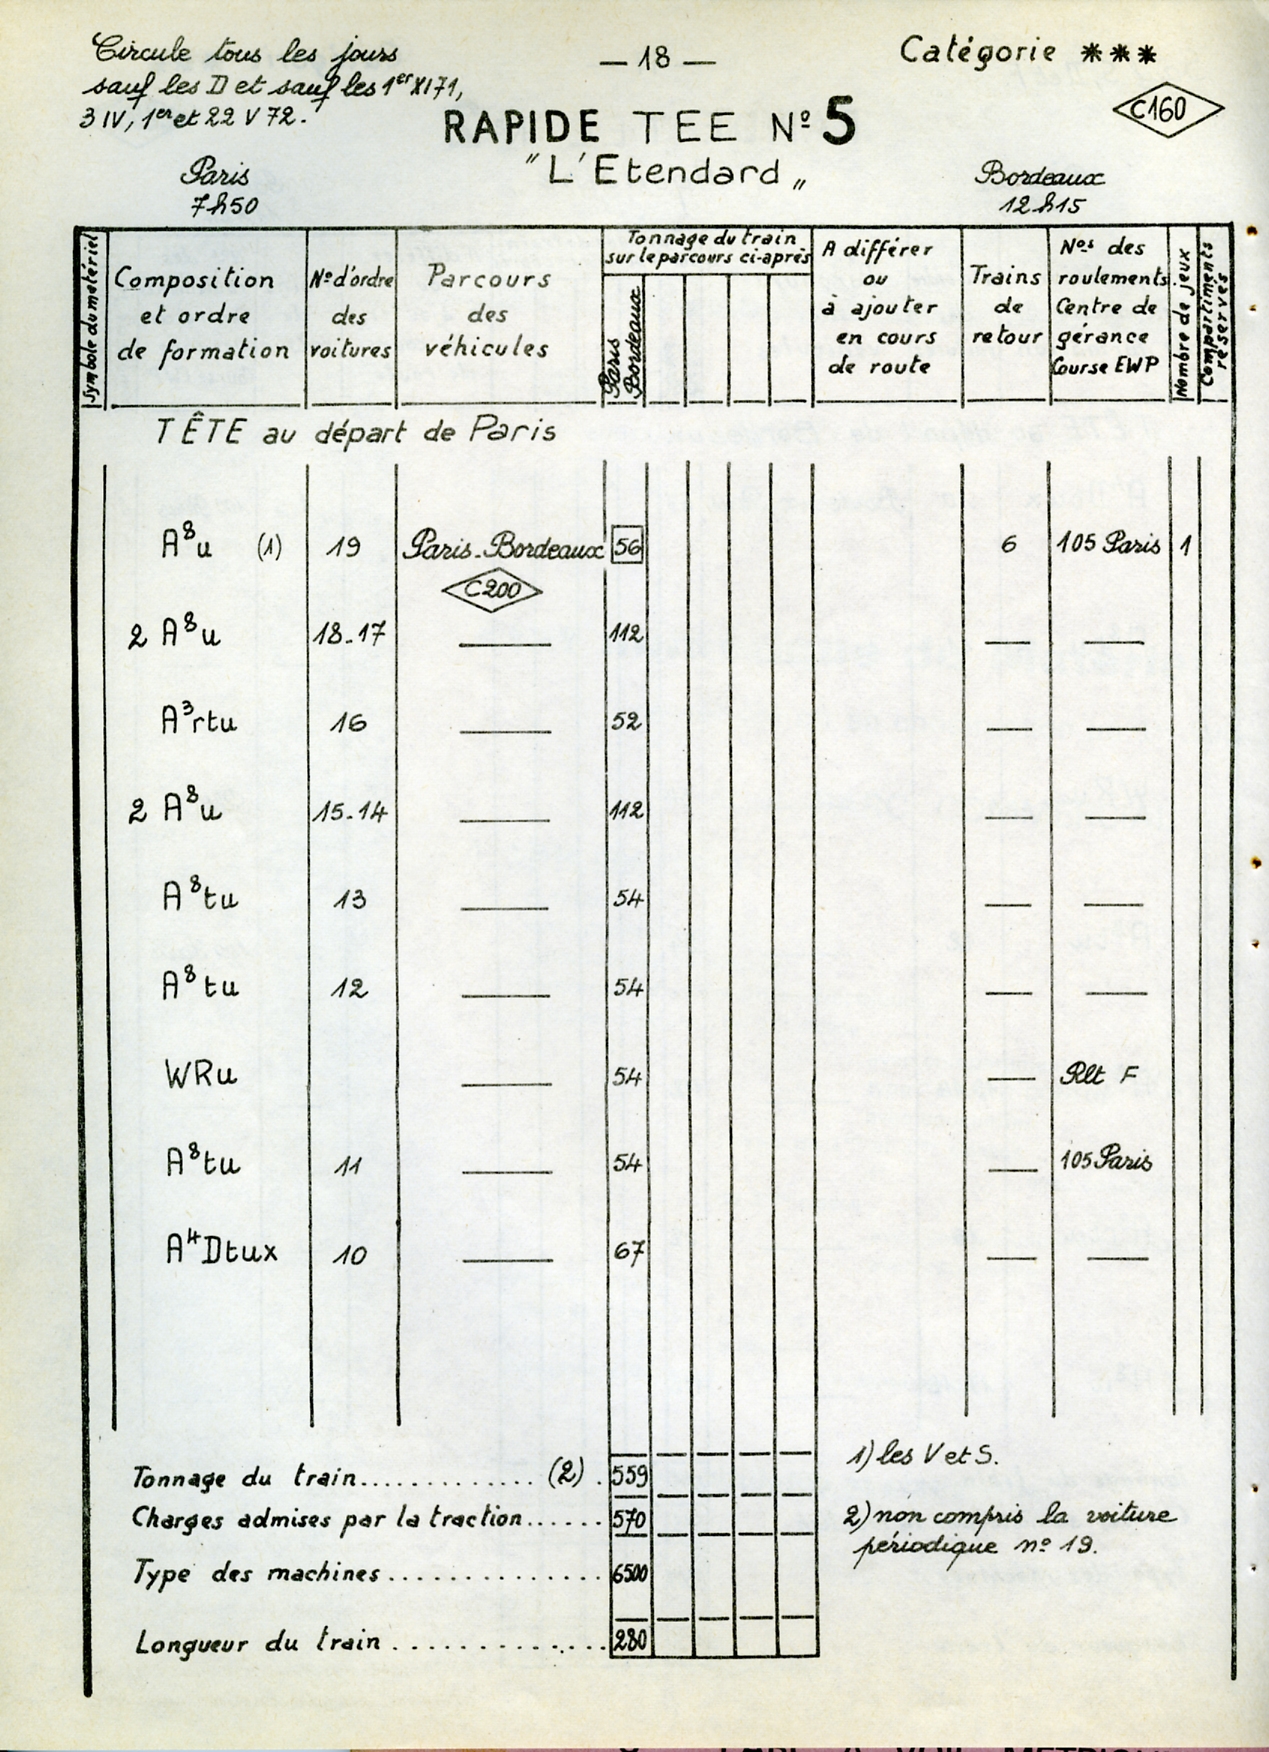 Circule tous les jours
sauf les D et sauf les 1er XI 71,
3 IV, 1er et 22 V 72.
— 18 —
Catégorie ***
C160
RAPIDE TEE Nº 5
"L'Etendard„
Paris
7h50
Bordeaux
12h15
Symbole du matériel
Composition
et ordre
de formation
Nº d'ordre
des
voitures
Parcours
des
véhicules
Tonnage du train
sur le parcours ci-après
Paris
Bordeaux
A différer
ou
à ajouter
en cours
de route
Trains
de
retour
Nos des
roulements
Centre de
gérance
Course EWP
Nombre de jeux
Compartiments
réservés
TÊTE au départ de Paris
A8u (1) 19 Paris-Bordeaux 56 6 105 Paris 1
C200
2 A8u 18-17 — 112 — —
A3rtu 16 — 52 — —
2 A8u 15-14 — 112 — —
A8tu 13 — 54 — —
A8tu 12 — 54 — —
WRu — 54 — Rlt F
A8tu 11 — 54 — 105 Paris
A4Dtux 10 — 67 — —
Tonnage du train............. (2) . 559
Charges admises par la traction...... 570
Type des machines............... 6500
Longueur du train.............. 280
1) les V et S.
2) non compris la voiture
périodique nº 19.